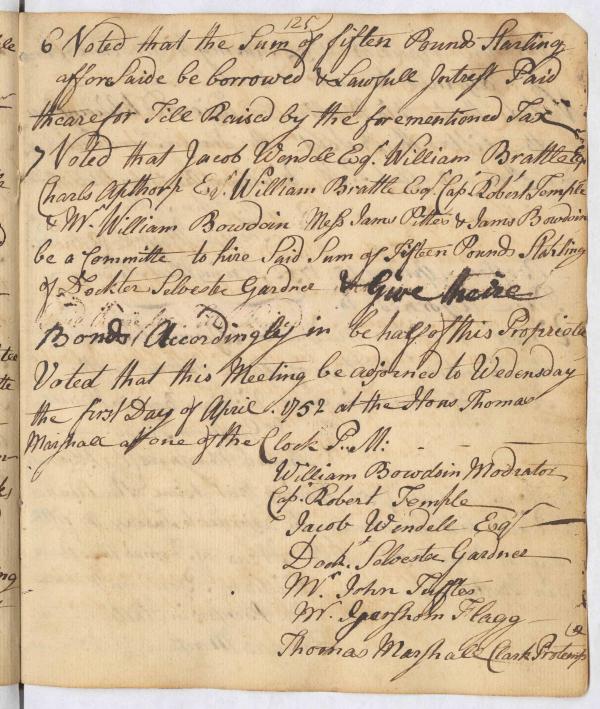 125
6 Voted that the Sum of fifteen Pounds Starling
afforsaide be borrowed & Lawfull Intrest Paid
thearefor Till Raised by the forementioned Tax
7 Voted that Jacob Wendele Esqr. William Brattle Esqr
Charls Apthorp Esqr. William Brattle Esqr. Capt. Robert Temple
& Mr. William Bowdoin Mess James Pittes & James Bowdoin
be a Committe to hire Said Sum of Fifteen Pounds Starling
of Dockter Selvester Gardner & Give theire
Bonds Accordingly in behalf of this Proprietee
Voted that this Meeting be adjorned to Wedensday
the first Day of April. 1752 at the Hous Thomas
Marshall at one of the Clock P.M:
William Bowdoin Modrator
Capt. Robert Temple
Jacob Wendell Esqr
Dockr. Selvester Gardner
Mr. John Tuftes
Mr. Gershom Flagg
Thomas Marshall Clark Protemp